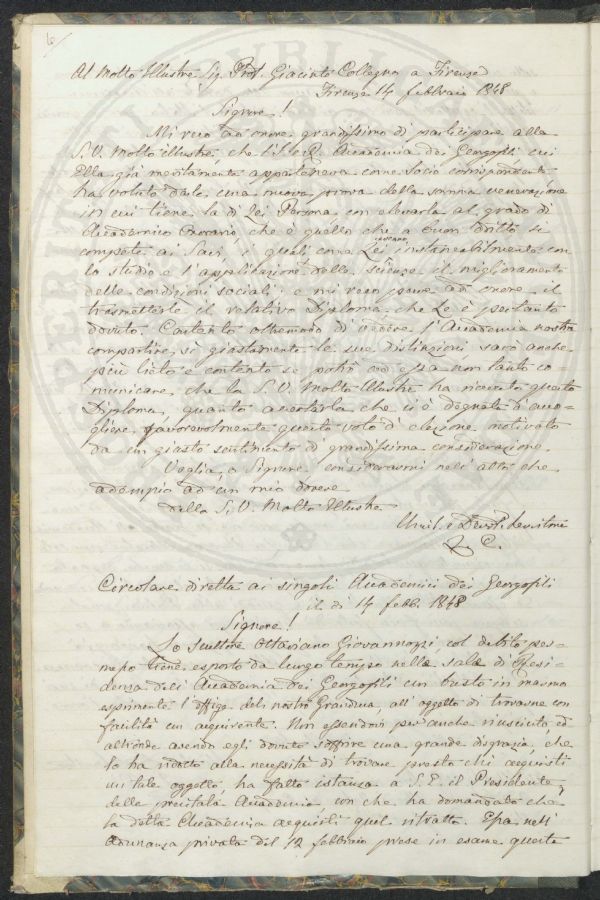 6
Al Molto Illustre Sig. Prof. Giacinto Collegno a Firenze
Firenze 14 febbraio 1848
Signore!
Mi reco ad onore grandissimo di partecipare alla
S. V. Molto illustre, che l'I. e R. Accademia dei Georgofili cui
Ella già meritamente apparteneva come Socio corrispondente
ha voluto darle una nuova prova della somma venerazione
in cui tiene la di Lei Persona con elevarla al grado di
Accademico Onorario, che è quello che a buon diritto si
compete ai Savi, i quali come Lei procurano instancabilmente con
lo studio e l'applicazione delle scienze il miglioramento
delle condizioni sociali: e mi reco pure ad onore il
trasmetterle il relativo Diploma che Le è pertanto
dovuto. Contento oltremodo di vedere l'Accademia nostra
compartire sì giustamente le sue distinzioni sarò anche
più lieto e contento se potrò ad essa non tanto co-
municare che la S. V. Molto Illustre ha ricevuto questo
Diploma, quanto accertarla che si è degnata d'acco-
gliere favorevolmente questo voto d'elezione motivato
da un giusto sentimento di grandissima considerazione.
Voglia, o Signore, considerarmi nell'atto che
adempio ad un mio dovere
della S. V. Molto Illustre
Umil. e Devot. Servitore
L. C.
Circolare diretta ai singoli Accademici dei Georgofili
il dì 14 febb. 1848
Signore!
Lo Scultore Ottaviano Giovannozzi, col debito per-
messo tiene esposto da lungo tempo nelle sale di Resi-
denza dell'Accademia dei Georgofili un busto in marmo
esprimente l'effige del nostro Granduca, all'oggetto di trovarne con
facilità un acquirente. Non essendovi per anche riuscito, ed
altronde avendo egli dovuto soffrire una grande disgrazia, che
lo ha ridotto alla necessità di trovare presto chi acquisti
un tale oggetto, ha fatto istanza a S. E. il Presidente
della precitata Accademia, con che ha domandato che
la detta Accademia acquisti quel ritratto. Essa nell'
Adunanza privata del 12 febbraio prese in esame questa